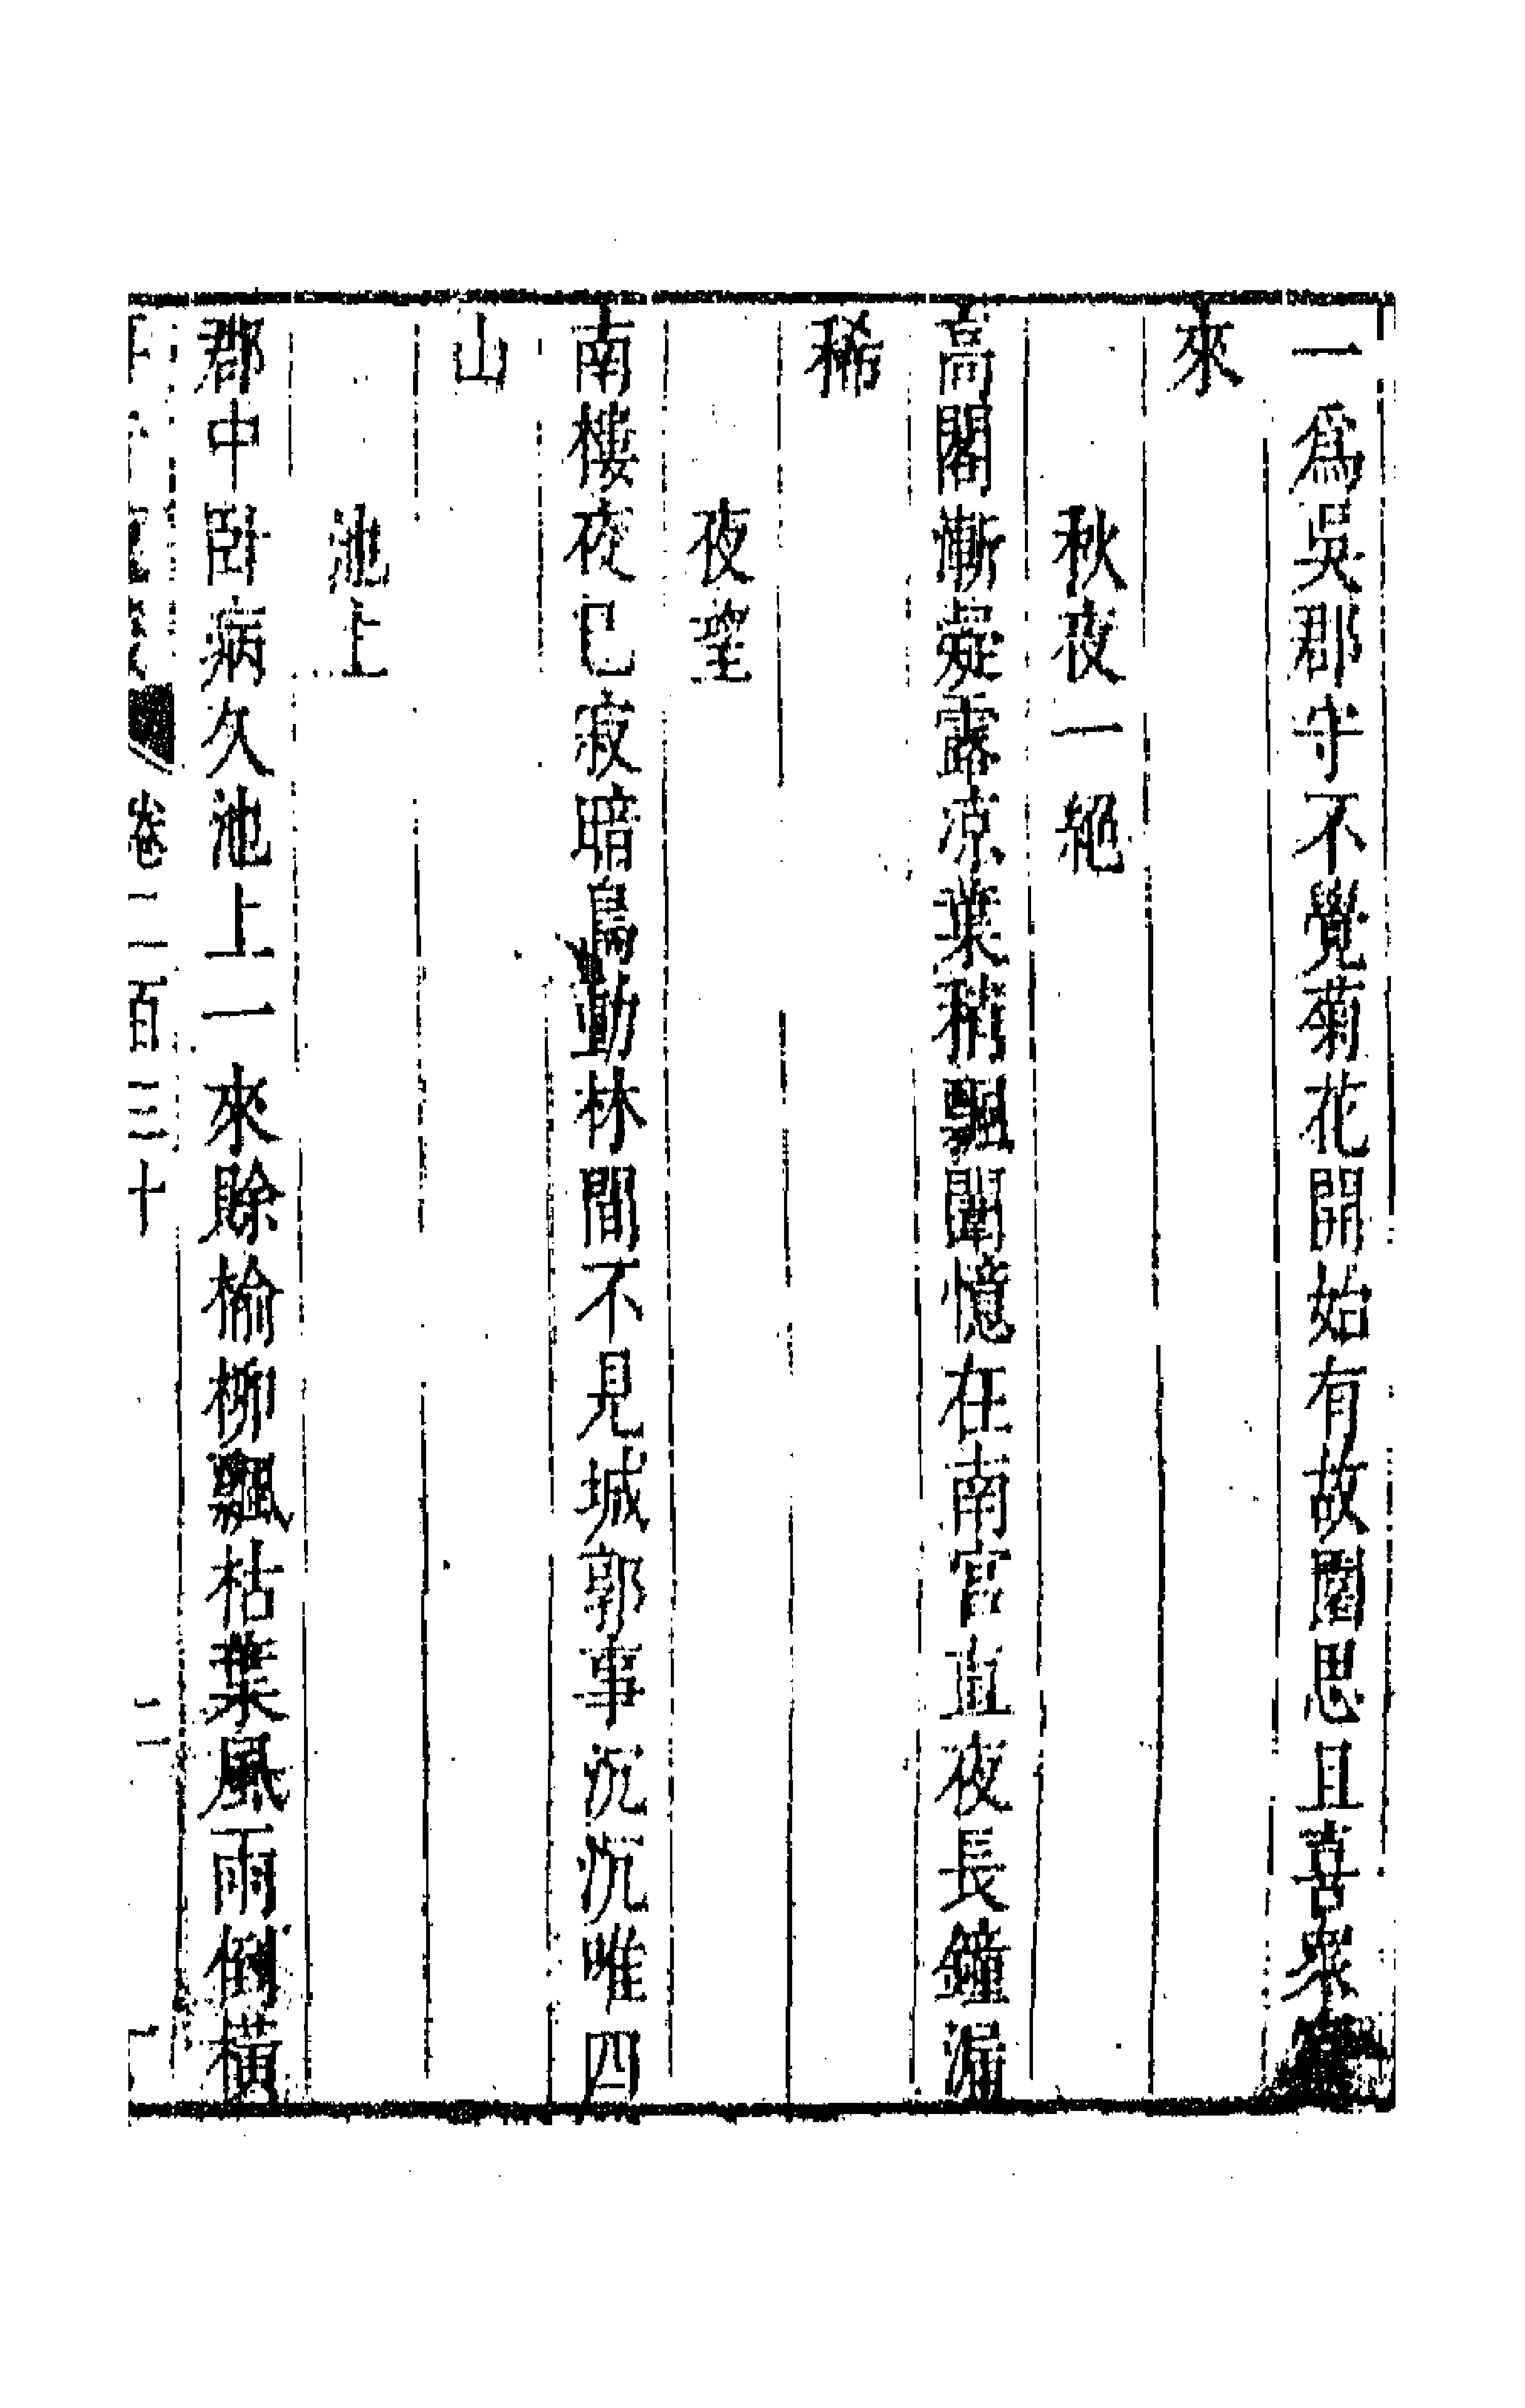 一爲吳郡守不覺菊花開始有故園思且喜衆
來
秋夜一絕
高閣漸凝露凉葉稍飄闈憶在南宫直夜長鐘漏
稀
夜望
南樓夜已寂暗鳥動林間不見城郭事沉沉唯四
山
池上
郡中卧病久池上一來賖榆柳飄枯葉風雨倒橫
卷二百三十
二